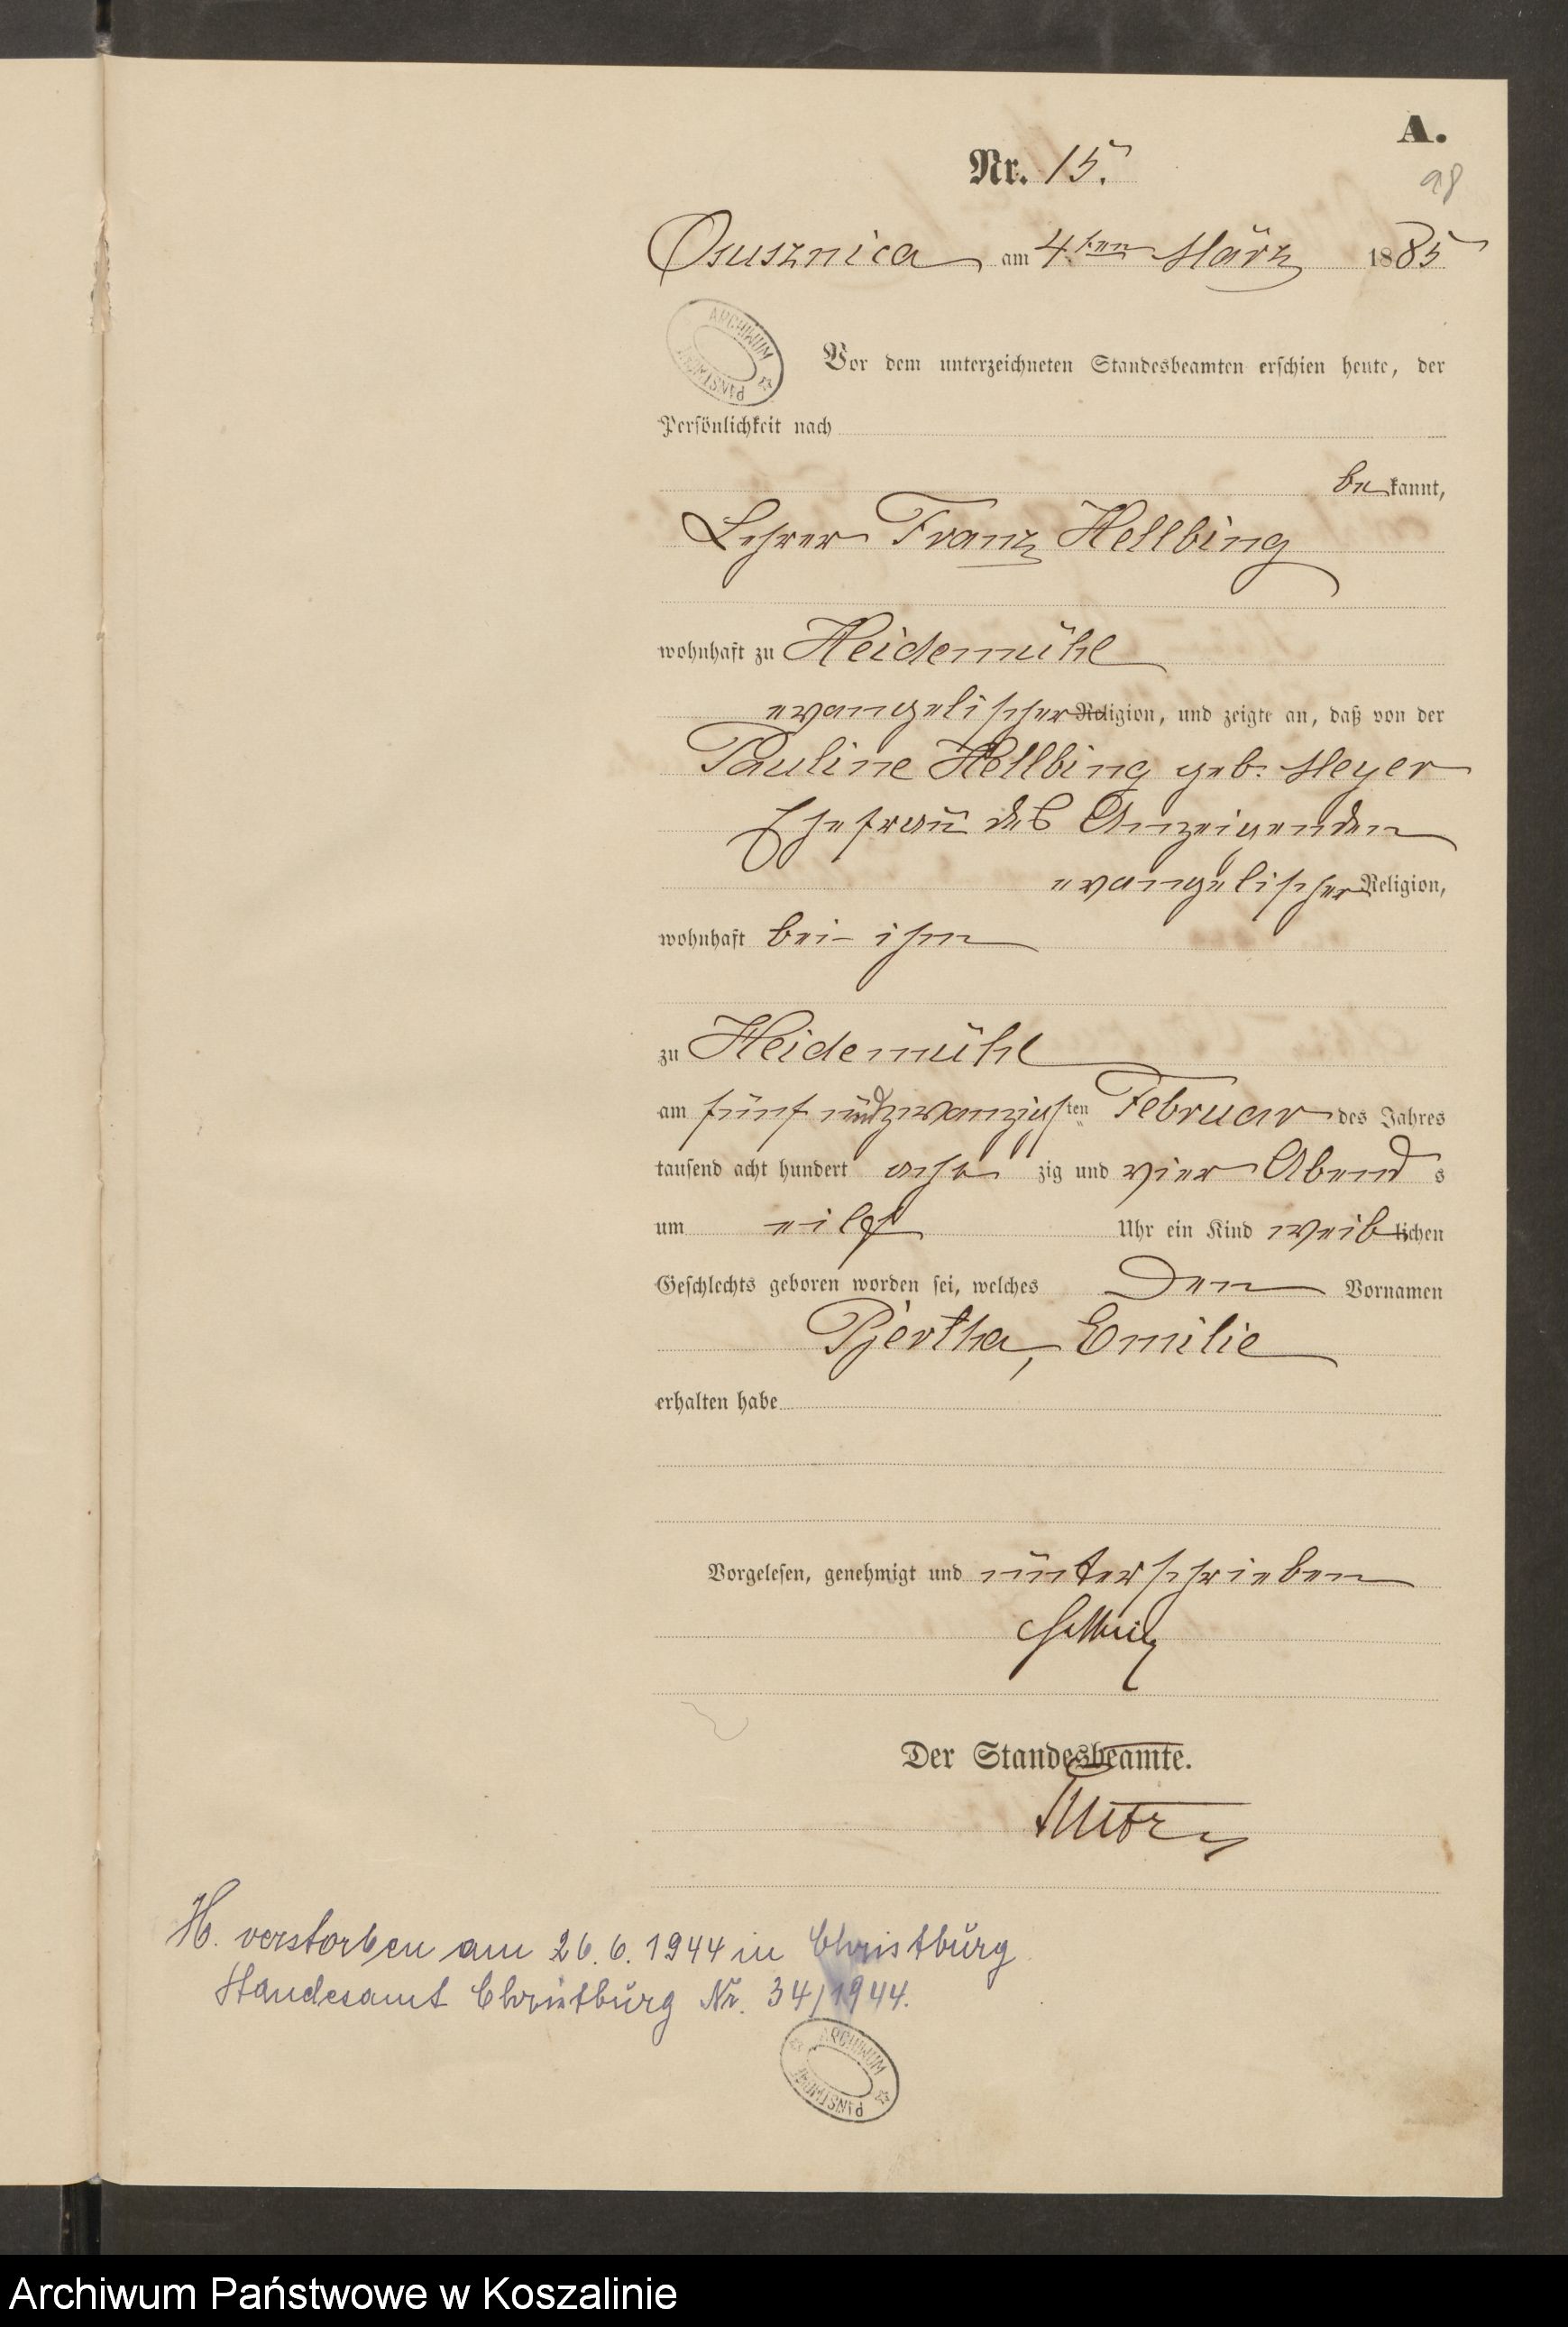 A.
Nr. 15.
98
Ossusznica am 4ten März 1885
ARCHIWUM PAŃSTWOWE
Vor dem unterzeichneten Standesbeamten erschien heute, der
Persönlichkeit nach
bekannt,
Lehrer Franz Hellbing
wohnhaft zu Heidemühl
evangelischer Religion, und zeigte an, daß von der
Pauline Hellbing geb. Meyer
Ehefrau des Anzeigenden
evangelischer Religion,
wohnhaft bei ihm
zu Heidemühl
am fünf und zwanzigsten Februar des Jahres
tausend acht hundert acht zig und vier Abend s
um eilf Uhr ein Kind weiblichen
Geschlechts geboren worden sei, welches den Vornamen
Bertha, Emilie
erhalten habe
Vorgelesen, genehmigt und unterschrieben
Hellbing
Der Standesbeamte.
H. verstorben am 26.6.1944 in Christburg
Standesamt Christburg Nr. 34/1944.
ARCHIWUM PAŃSTWOWE
Archiwum Państwowe w Koszalinie